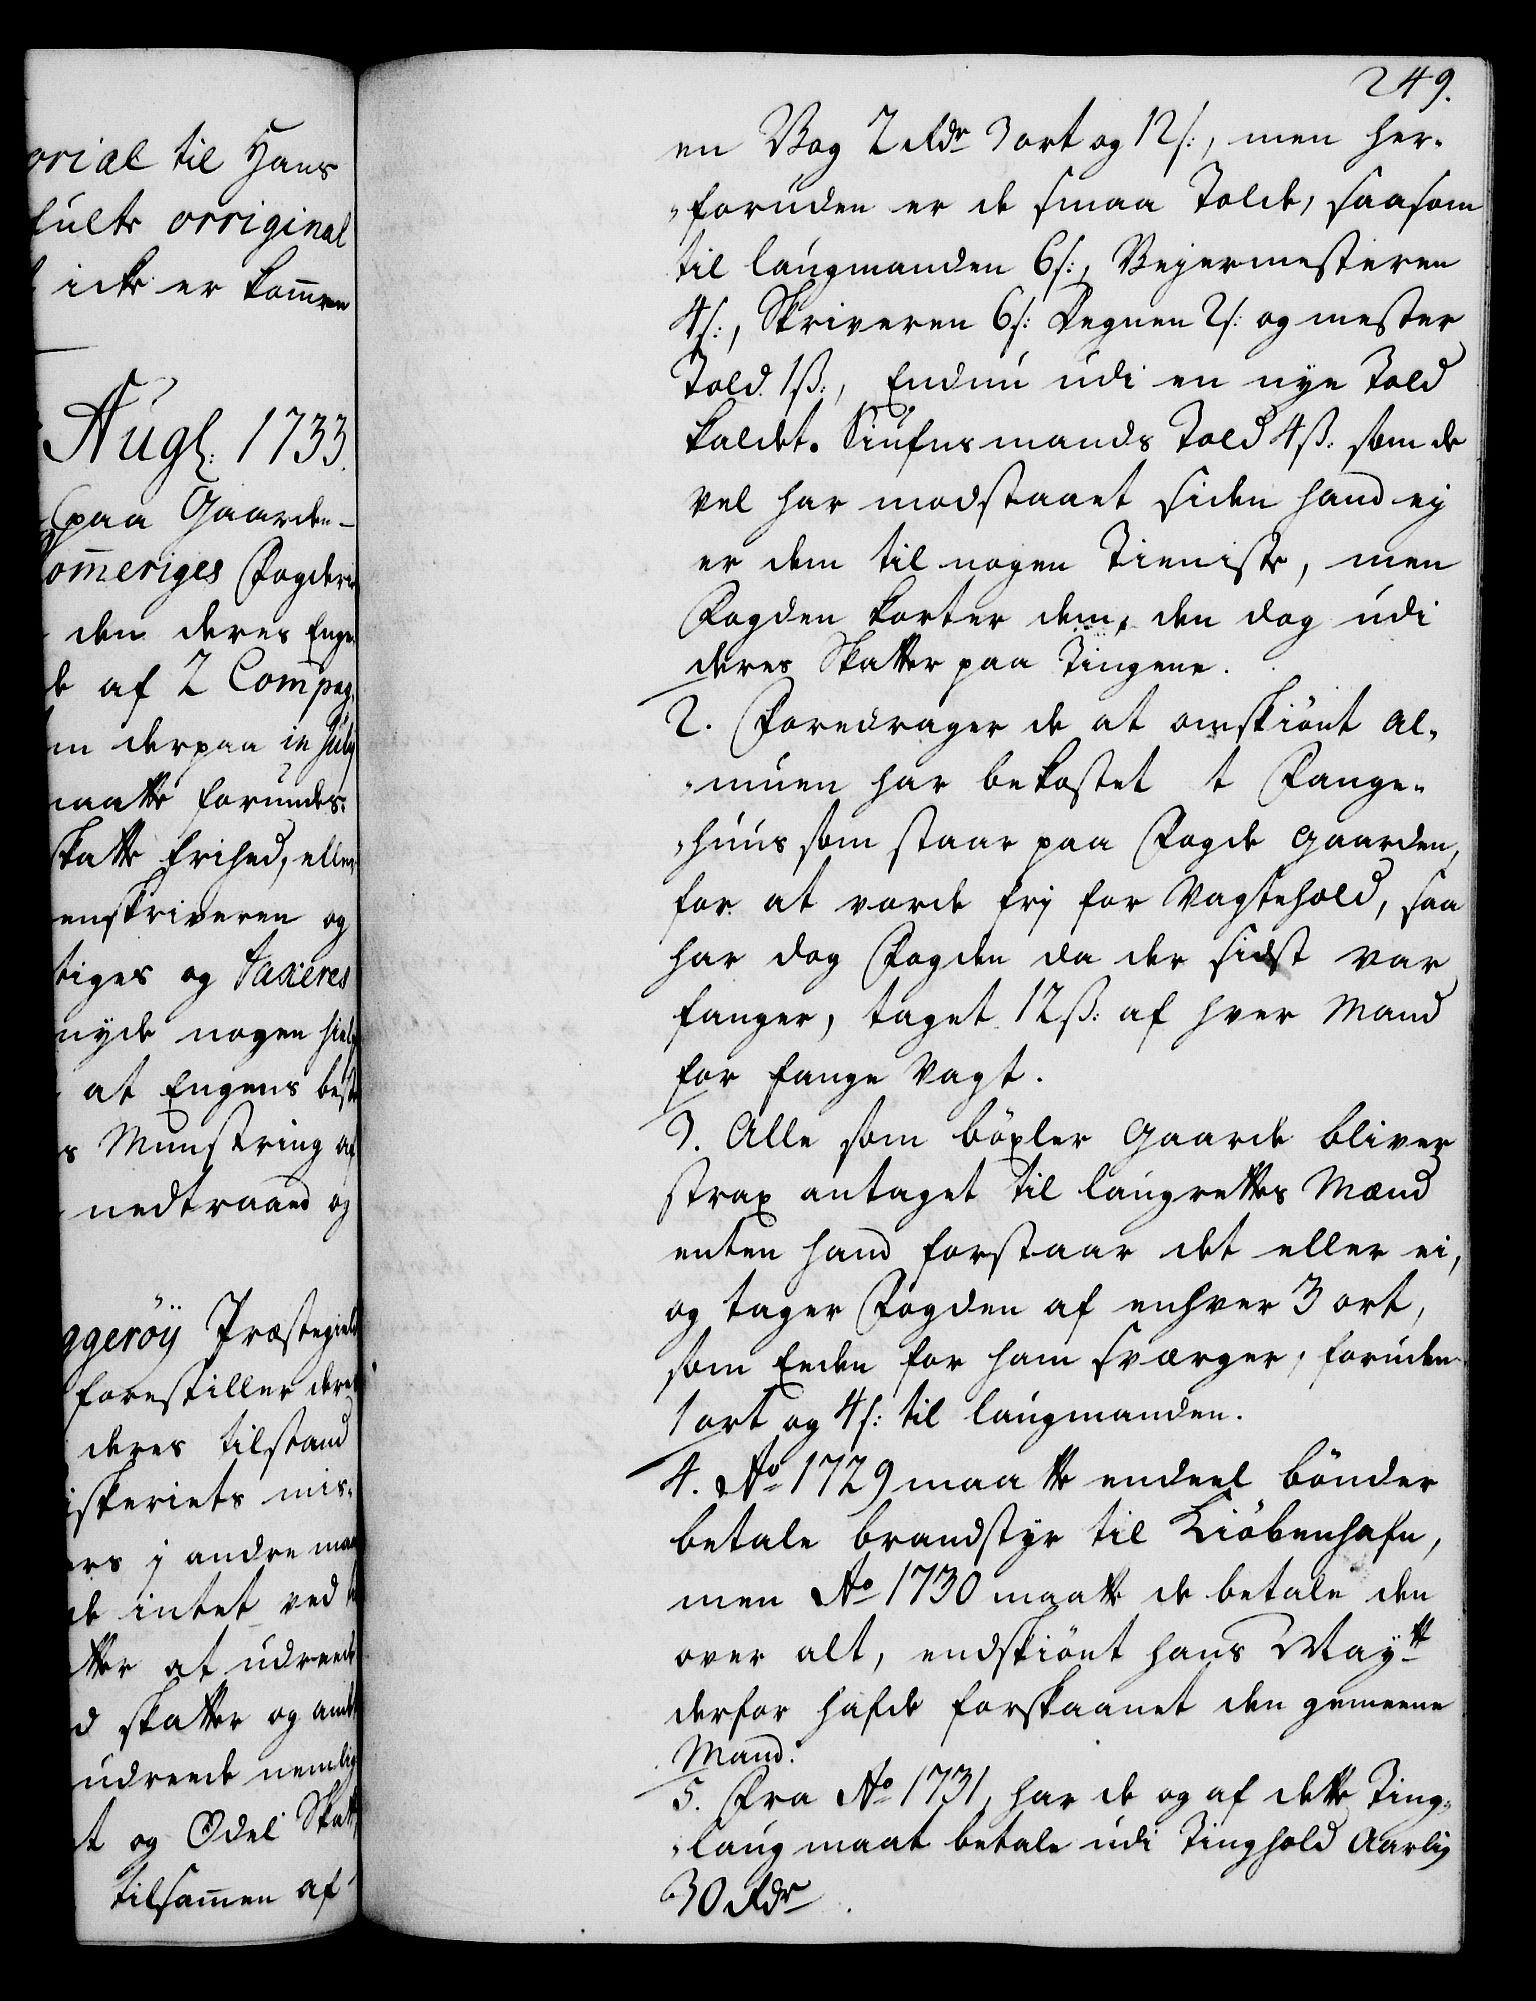 orial til Hans
fulte orriginal
icke er kom̄en
Augs: 1733.
paa Gaarden
om̄eriges Fogderie
den deres Enge
af 2 Compag.
m derpaa in July
maatte forundes
skatte frihed, eller
enskriveren og
tiges og taxeres
nyde nogen hielp
at Engens beste
s Munstring af
nedtraad og
ggeröy Præstegield
forestiller deres
deres tilstand
iskeriets mis-
ers j andre maa
de intet ved
tter at udreede
d skatter og amts
udreede nemlig
t og Odel Skatt
tilsam̄en af
249.
en Vog 2 Rdr 3 ort og 12 s:, men her-
„foruden er de smaa Tolde, saasom
til laugmanden 6 s:, Vejermesteren
4 s:, Skriveren 6 s: Degnen 2 s: og mester
Told 1 ß:, Endnu udi en nye Told
kaldet. Siufnsmands Told 4 ß: som de
vel har modstaaet siden hand ej
er dem til nogen Tieniste, men
Fogden korter dem, den dog udi
deres Skatter paa Tingene.
2. Foredrager de at omskiönt Al-
„muen har bekostet t Fange-
„huus som staar paa Fogde gaarden,
for at vorde frj for Vagtehold, saa
har dog Fogden da der sidst var
fanger, taget 12 ß: af hver Mand
for fange Vagt.
3. Alle som böxler Gaarde bliver
strax antaget til laugrettes Mænd
enten hand forstaar det eller ei,
og tager Fogden af enhver 3 ort,
som Eeden for ham sværger, foruden
1 ort og 4 s: til laugmanden.
4. Ao 1729 maatte endeel bönder
betale brandstyr til Kiöbenhafn,
men Ao 1730 maatte de betale den
over alt, endskiönt hans Maytt
derfor hafde forskaanet den gemeene
Mand.
5. Fra Ao 1731, har de og af dette Ting-
„laug maat betale udi Tinghold Aarlig
30 Rdr